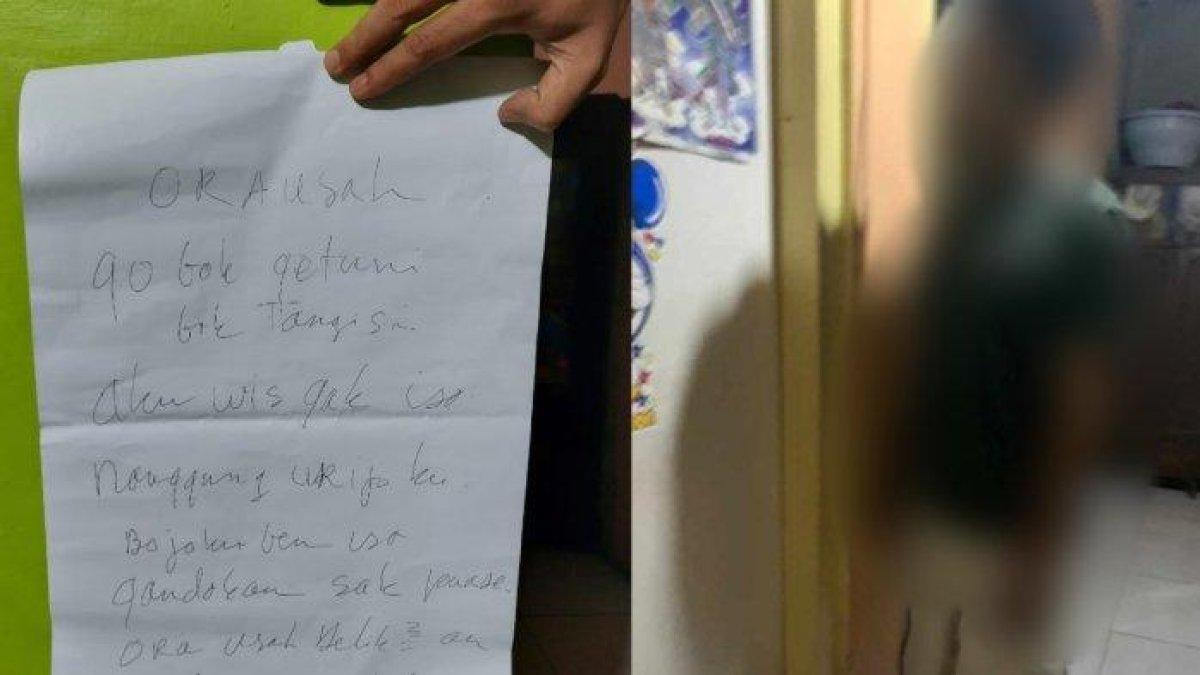 ORA USah
go bok getuni
bok Tangisi.
Aku wis gak iso
nanggung URipku.
Bojoku ben iso
gandokan sak puase.
ORA Usah delik² an